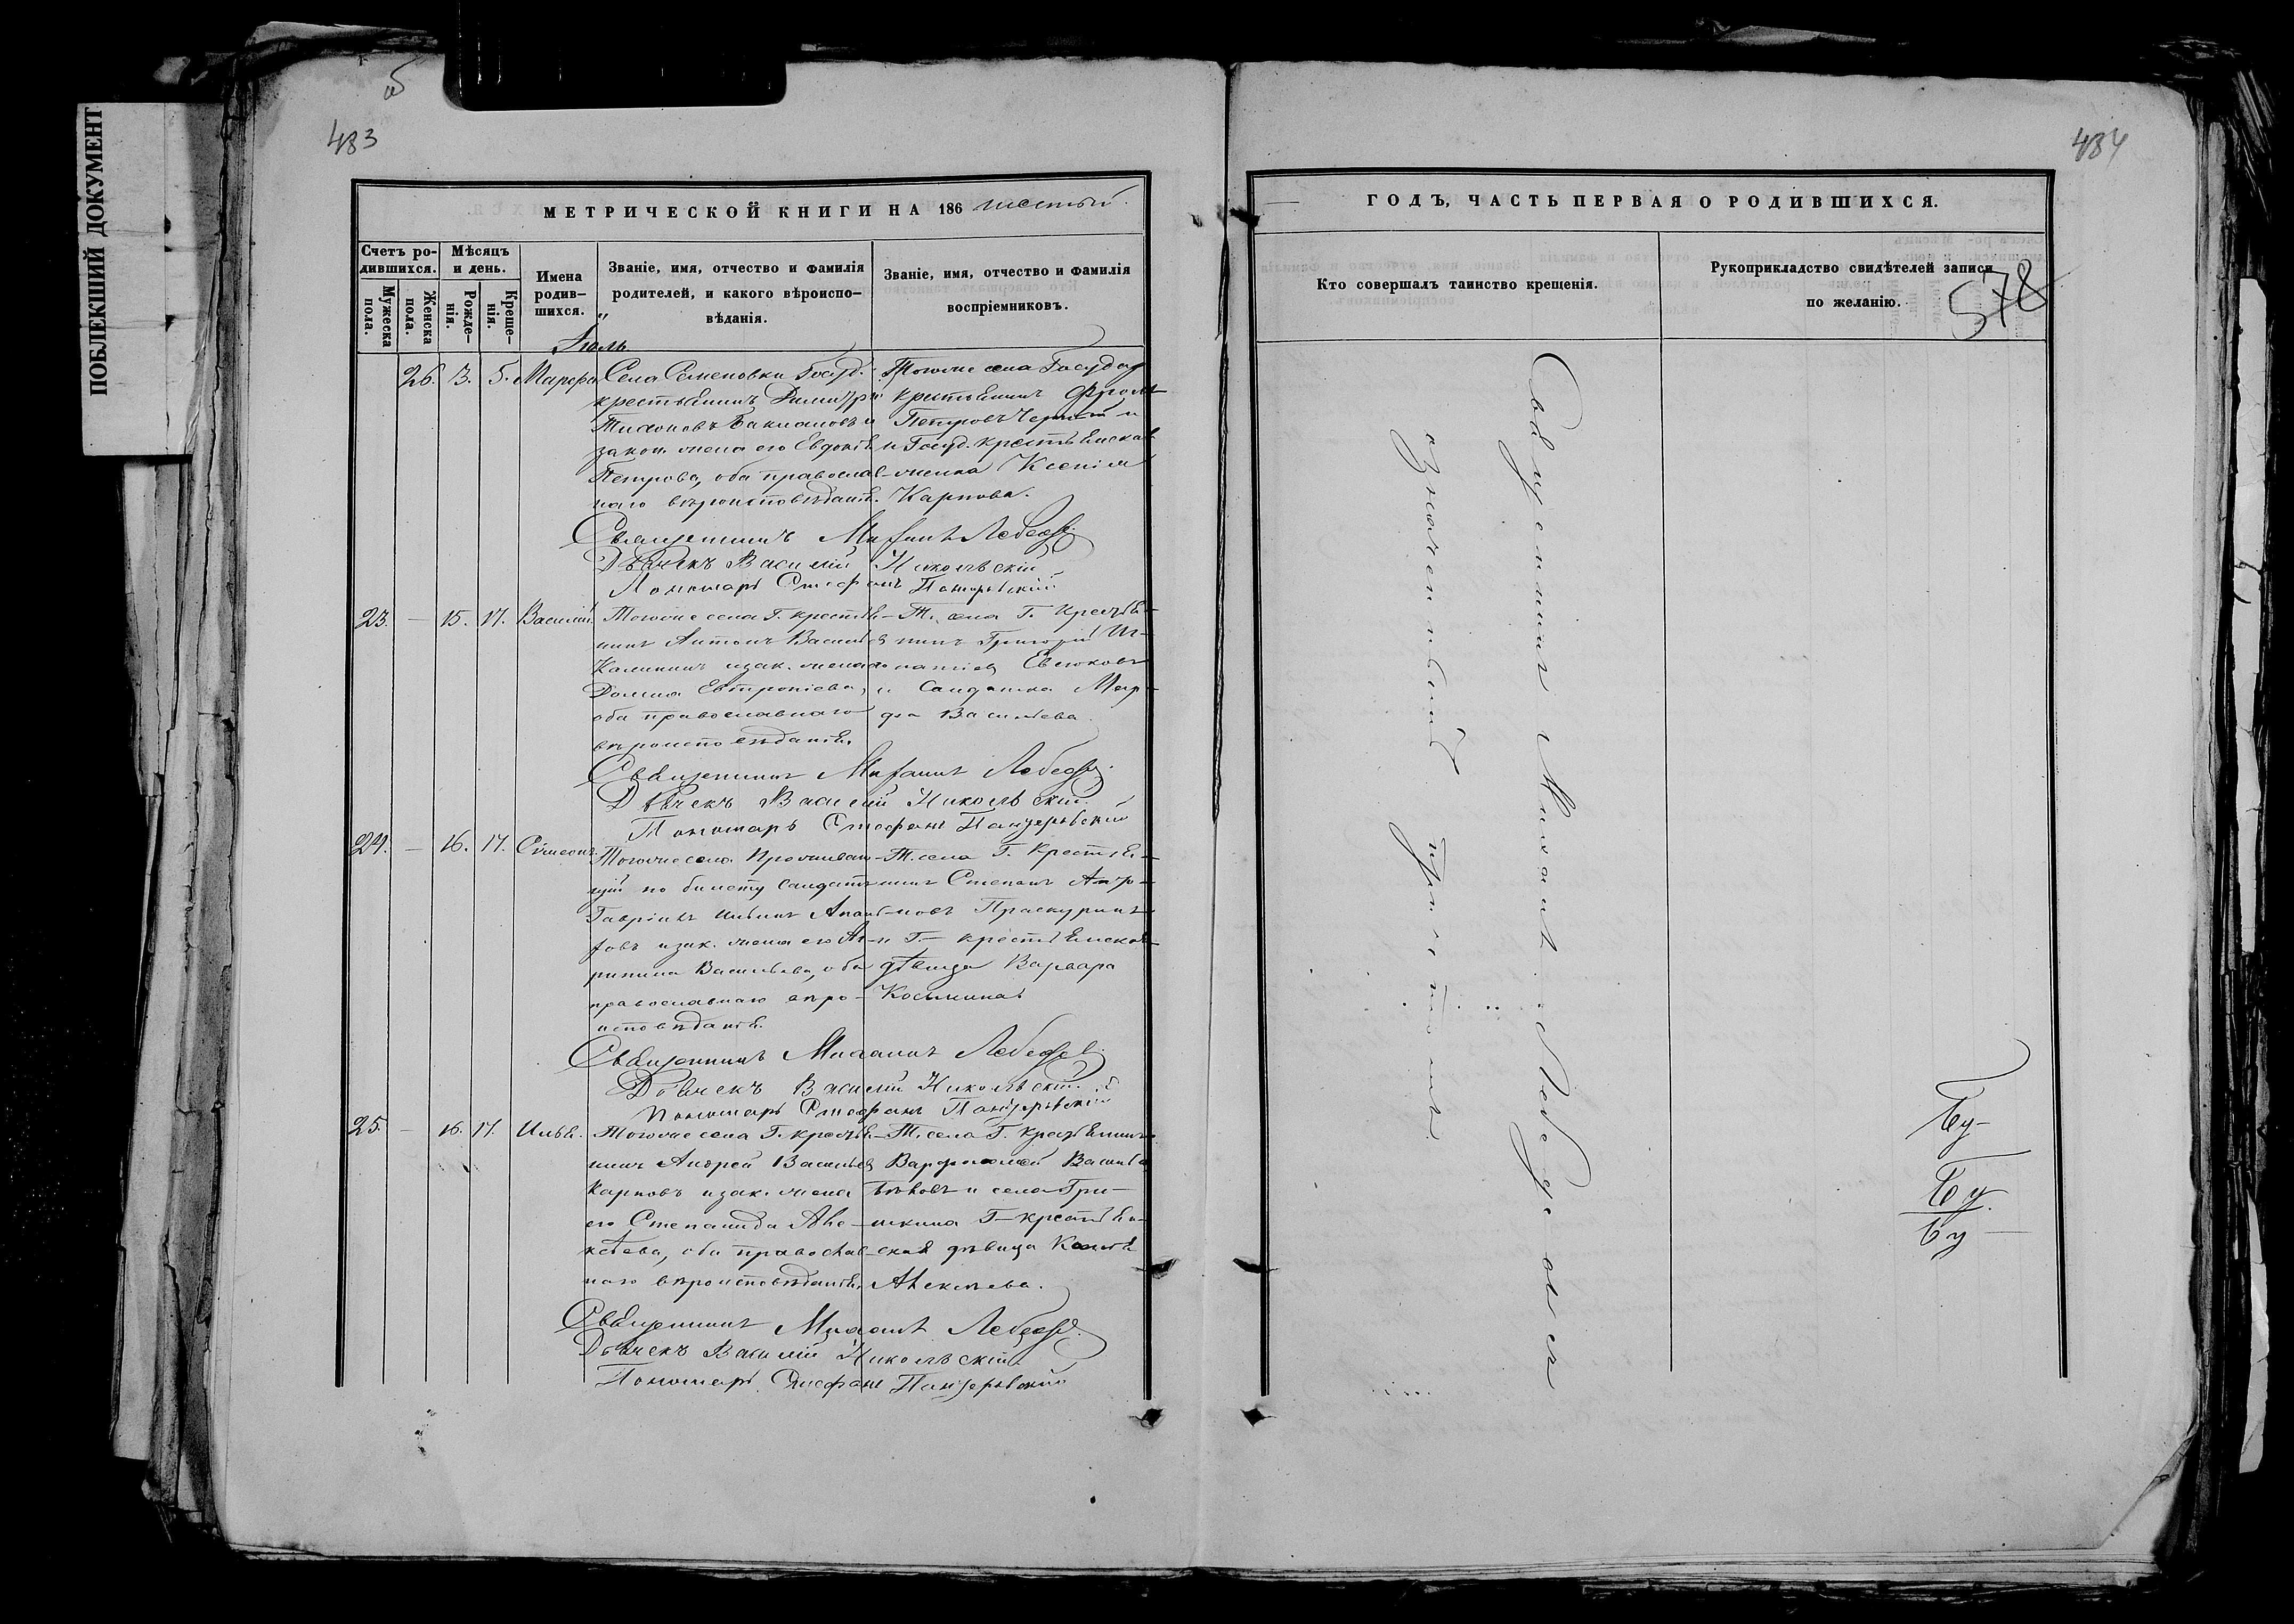 ПОБЛЕКШИЙ ДОКУМЕНТ
483
МЕТРИЧЕСКОЙ КНИГИ НА 186 шестый.
Счетъ ро-
дившихся.
Мужеска
пола.
Женска
пола.
Мѣсяцъ
и день.
Рожде-
нія.
Креще-
нія.
Имена
родив-
шихся.
Званіе, имя, отчество и фамилія
родителей, и какого вѣроиспо-
вѣданія.
Званіе, имя, отчество и фамилія
воспріемниковъ.
Іюль
26. 3. 5. Марфа
Села Семеновки Госуд.
крестьянинъ Димитрій
Тихоновъ и
закон. жена его Евдокія
Петрова, оба православ-
наго вѣроисповѣданія.
Тогоже села Государ
крестьянинъ Фролъ
Петровъ Черный и
и Госуд. крестьянская
женка Ксенія
Карпова.
Священникъ Михаилъ Лебедевъ
Дьячекъ Василій Никольскій
Пономарь Стефанъ
23. — 15. 17. Василій.
Тогоже села Г. крестья-
нинъ Антонъ Васильевъ
Калининъ и зак. жена его
Домна Евтропіева,
оба православнаго
вѣроисповѣданія,
Т. села Г. крестья-
нинъ Григорій Иг-
натіевъ Евсюковъ
и Салдатка Мар-
фа Васильева.
Священникъ Михаилъ Лебедевъ.
Дьячекъ Василій Никольскій.
Пономарь Стефанъ
24. — 16. 17. Сѵмеонъ.
Тогоже села проживаю-
щій по билету салдатъ
Гавріилъ Ильинъ
и зак. жена его Аг-
рипина Васильева, оба
православнаго вѣро-
исповѣданія.
Т. села Г. крестья-
нинъ Степанъ
Праскуринъ
и Г. крестьянская
дѣвица Варвара
Космина
Священникъ Михаилъ Лебедевъ.
Дьячекъ Василій Никольскій.
Пономарь Стефанъ
25. — 16. 17. Илья.
Тогоже села Г. крестья-
нинъ Андрей Васильевъ
Карповъ и зак. жена
его Степанида Але-
ксѣева, оба православ-
наго вѣроисповѣданія,
Т. села Г. крестьянинъ
Варфоломей
и села Гри-
шкина Г. крестьян-
ская дѣвица
Алексѣева.
Священникъ Михаилъ Лебедевъ.
Дьячекъ Василій Никольскій
Пономарь Стефанъ
484
ГОДЪ, ЧАСТЬ ПЕРВАЯ О РОДИВШИХСЯ.
Кто совершалъ таинство крещенія.
Рукоприкладство свидѣтелей записи
по желанію.
578
Священникъ Михаилъ Лебедевъ